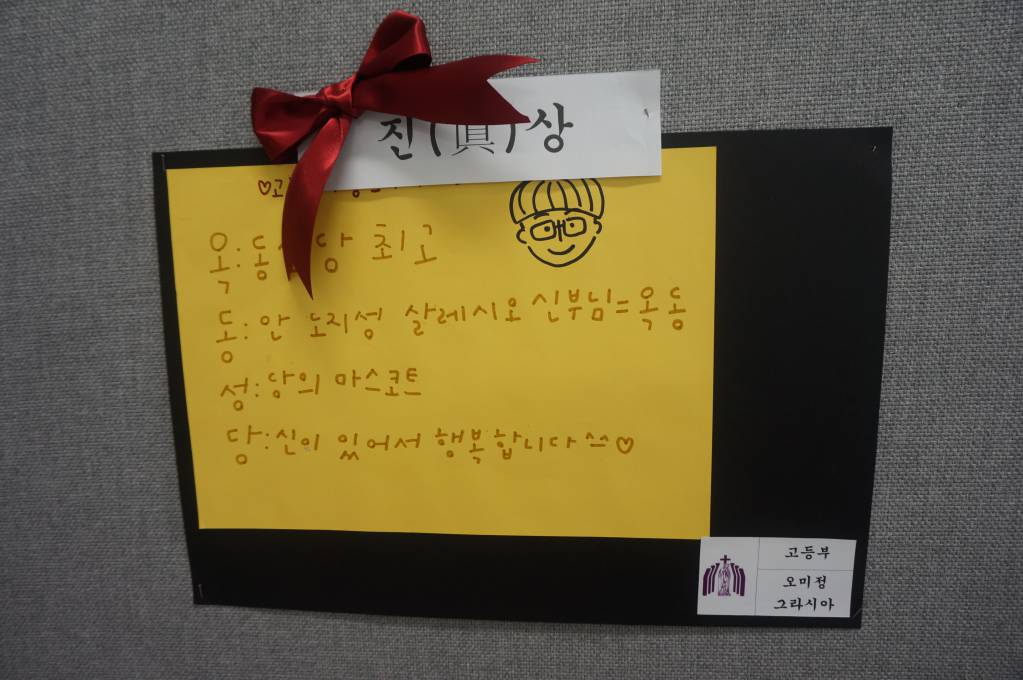 진(眞)상
옥: 최고
동: 안 노지성 살레시오 신부님=옥동
성: 당의 마스코트
당: 신이 있어서 행복합니다 ^^♡
고등부
오미정
그라시아